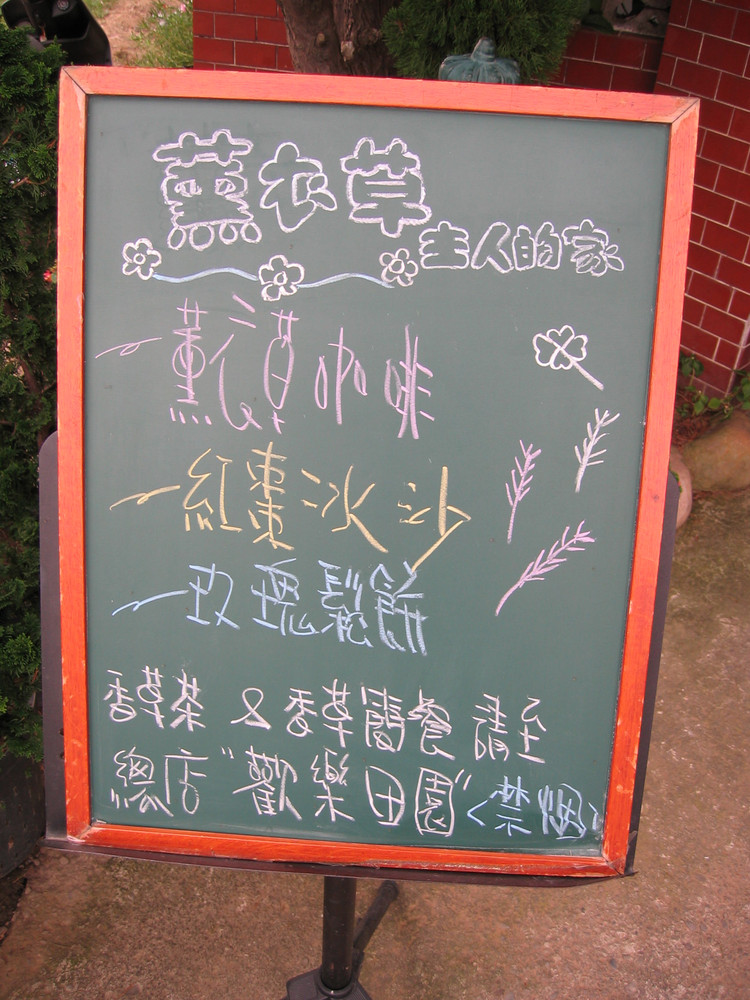 薰衣草
主人的家
薰衣草咖啡
紅棗冰沙
玫瑰鬆餅
香草茶 & 香草簡餐 請至
總店"歡樂田園"<禁烟>